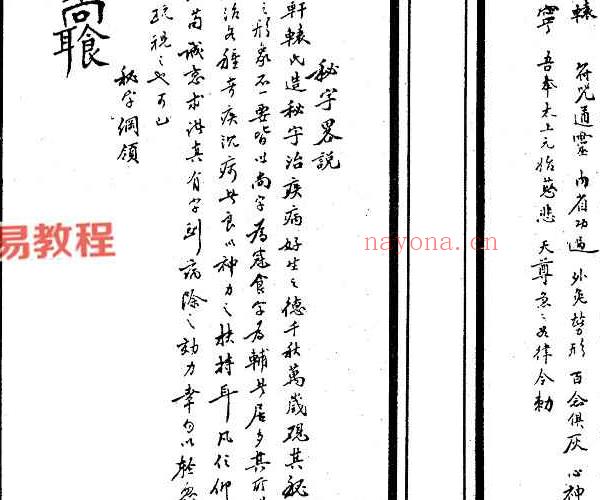 轅 符咒通靈 內省功過 外免勞形 百念俱灰 心神
寧 吾奉太上元始慈悲 天尊急急如律令勅
秘字畧說
軒轅氏造秘字治疾病好生之德千秋萬歲觀其秘
之形象不一要皆以尚字為冠食字為輔其居多其所
治各種奇疾沉疴其良以神力之扶持耳凡信仰
苟誠意求淇真有字到病除之効力幸勿以輕忽
疏視之也可已
秘字綱領
易教程
nayona.cn